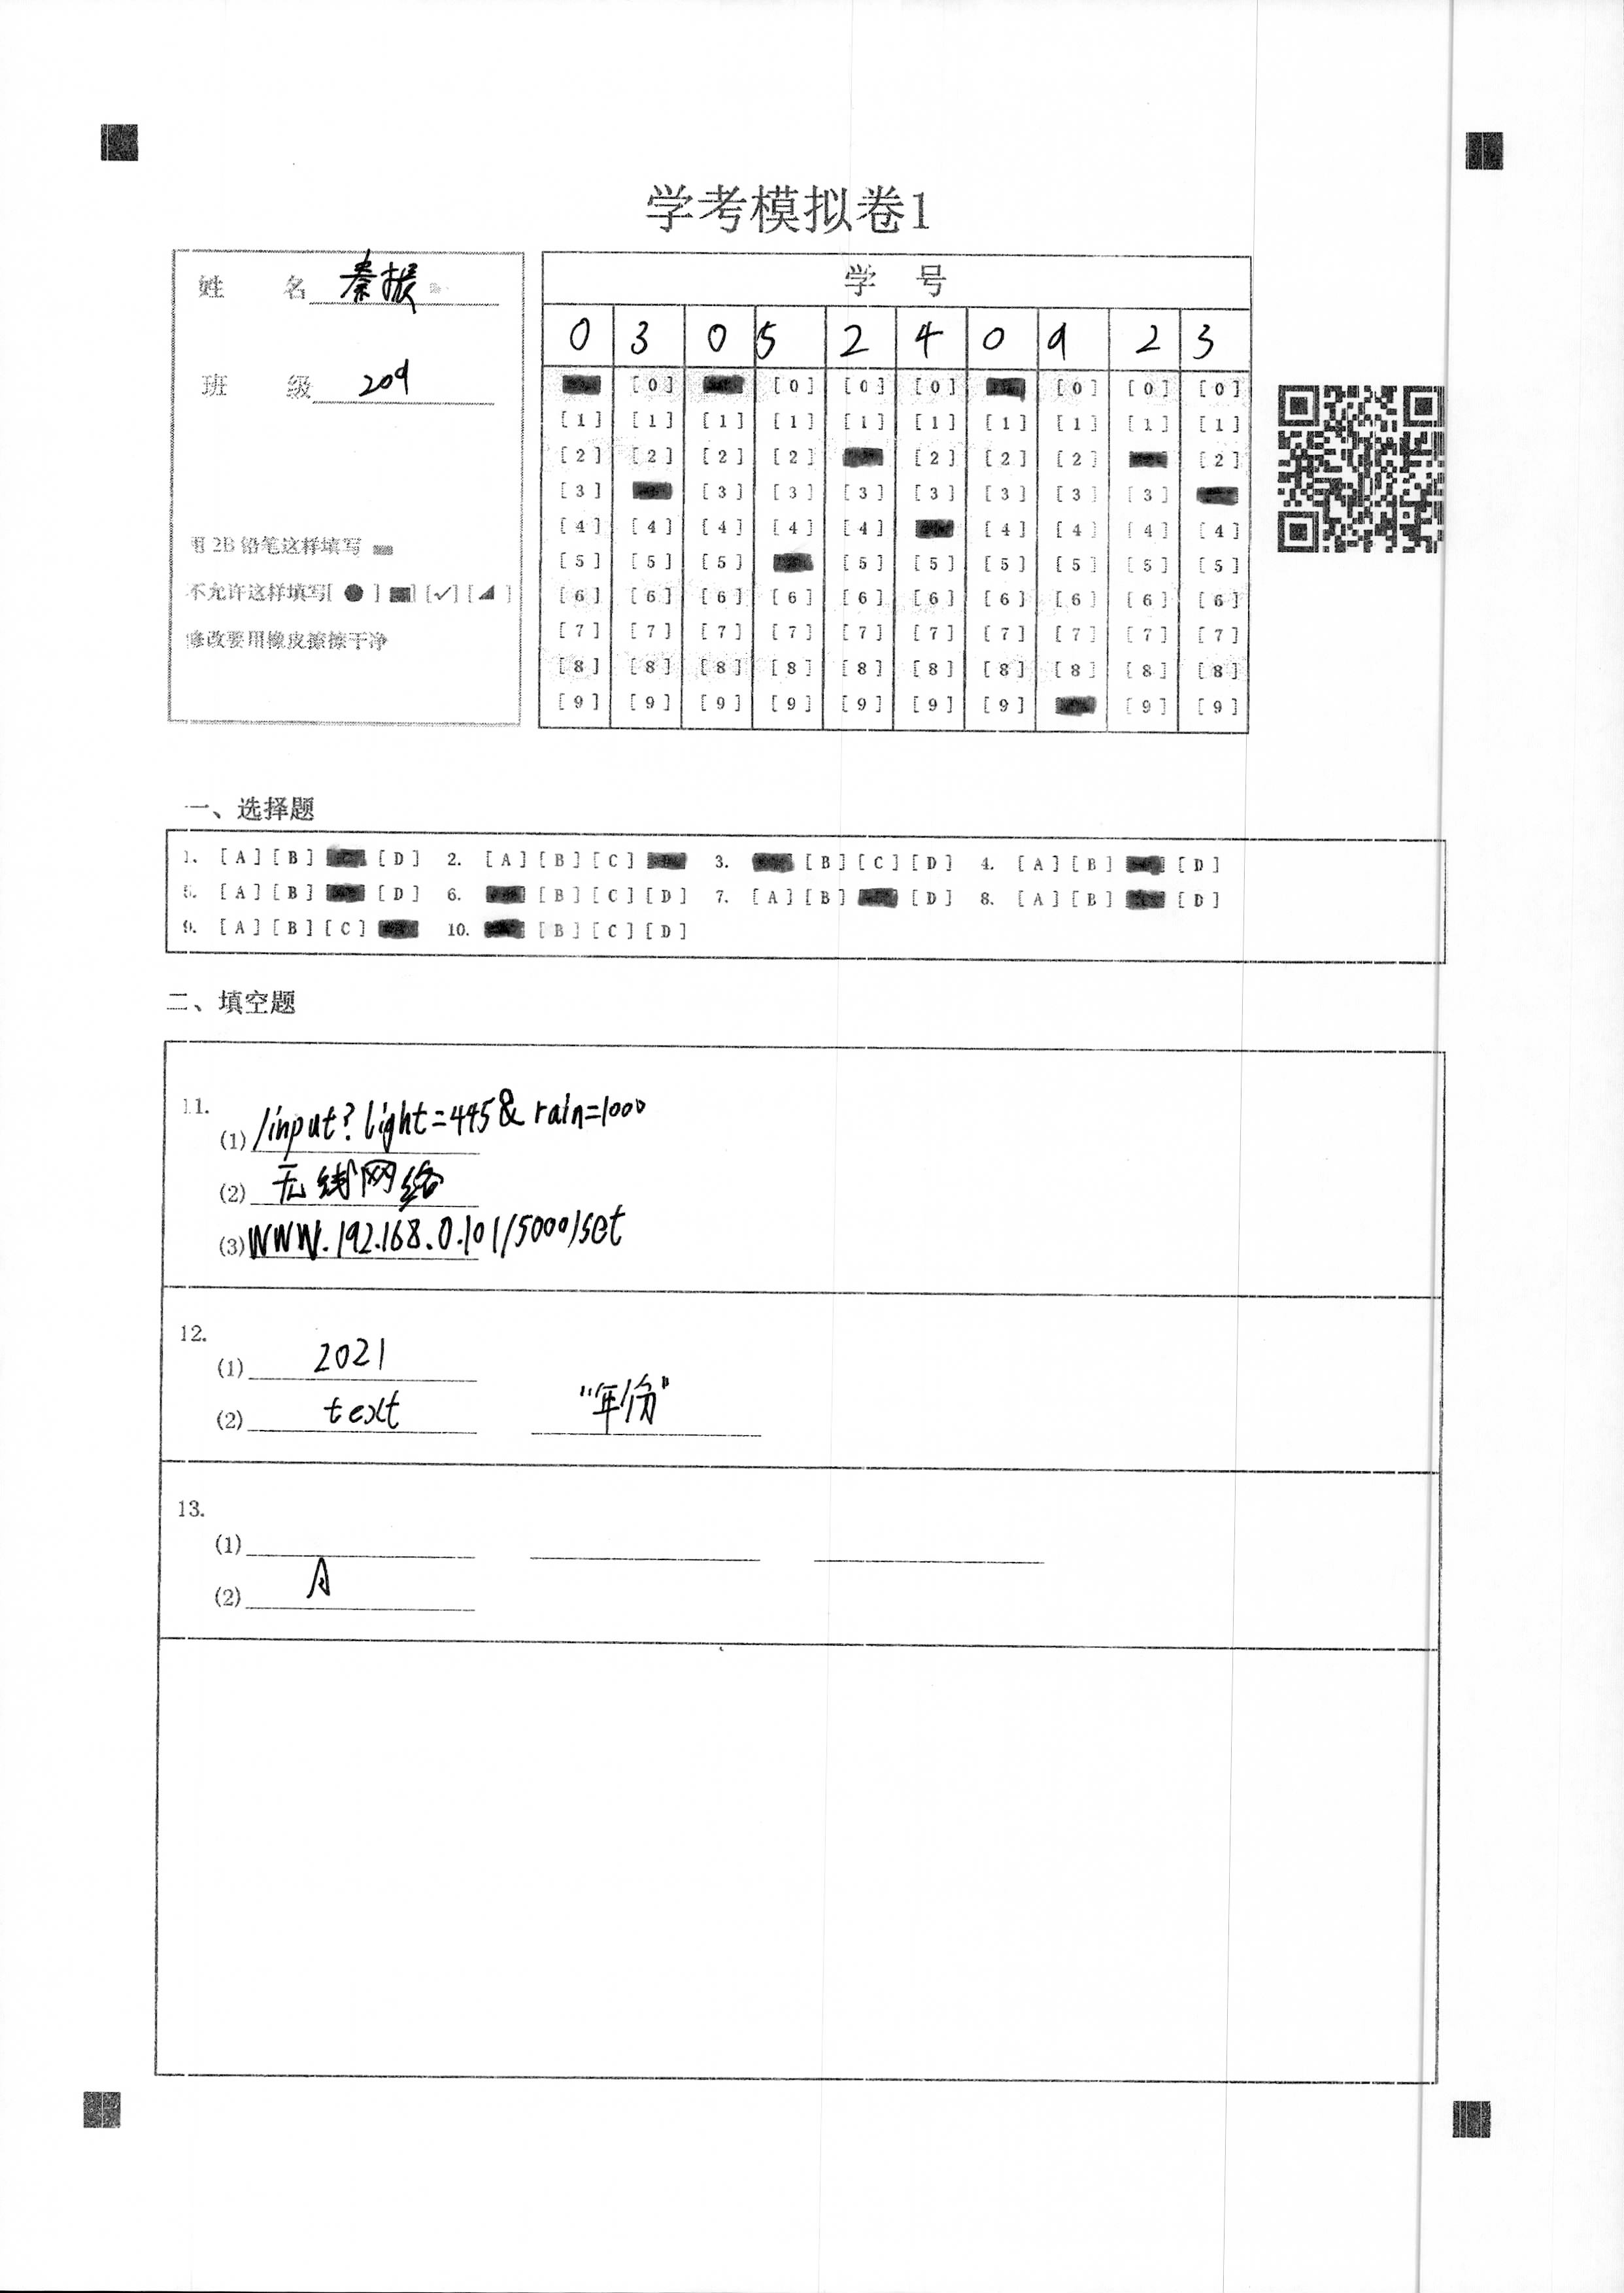 学考模拟卷1
姓 名 秦振
班 级 209
用 2B 铅笔这样填写
不允许这样填写[ ● ] [■] [✓] [◢ ]
修改要用橡皮擦擦干净
学 号
0 3 0 5 2 4 0 9 2 3
[0] [0] [0] [0] [0] [0] [0]
[1] [1] [1] [1] [1] [1] [1] [1] [1] [1]
[2] [2] [2] [2] [2] [2] [2] [2]
[3] [3] [3] [3] [3] [3] [3] [3]
[4] [4] [4] [4] [4] [4] [4] [4] [4]
[5] [5] [5] [5] [5] [5] [5] [5] [5]
[6] [6] [6] [6] [6] [6] [6] [6] [6] [6]
[7] [7] [7] [7] [7] [7] [7] [7] [7] [7]
[8] [8] [8] [8] [8] [8] [8] [8] [8] [8]
[9] [9] [9] [9] [9] [9] [9] [9] [9]
一、选择题
1. [A] [B] [D] 2. [A] [B] [C] 3. [B] [C] [D] 4. [A] [B] [D]
5. [A] [B] [D] 6. [B] [C] [D] 7. [A] [B] [D] 8. [A] [B] [D]
9. [A] [B] [C] 10. [B] [C] [D]
二、填空题
11.
(1) /input?light=445&rain=1000
(2) 无线网络
(3) WWW.192.168.0.101/5000/set
12.
(1) 2021
(2) text "年份"
13.
(1)
(2) A